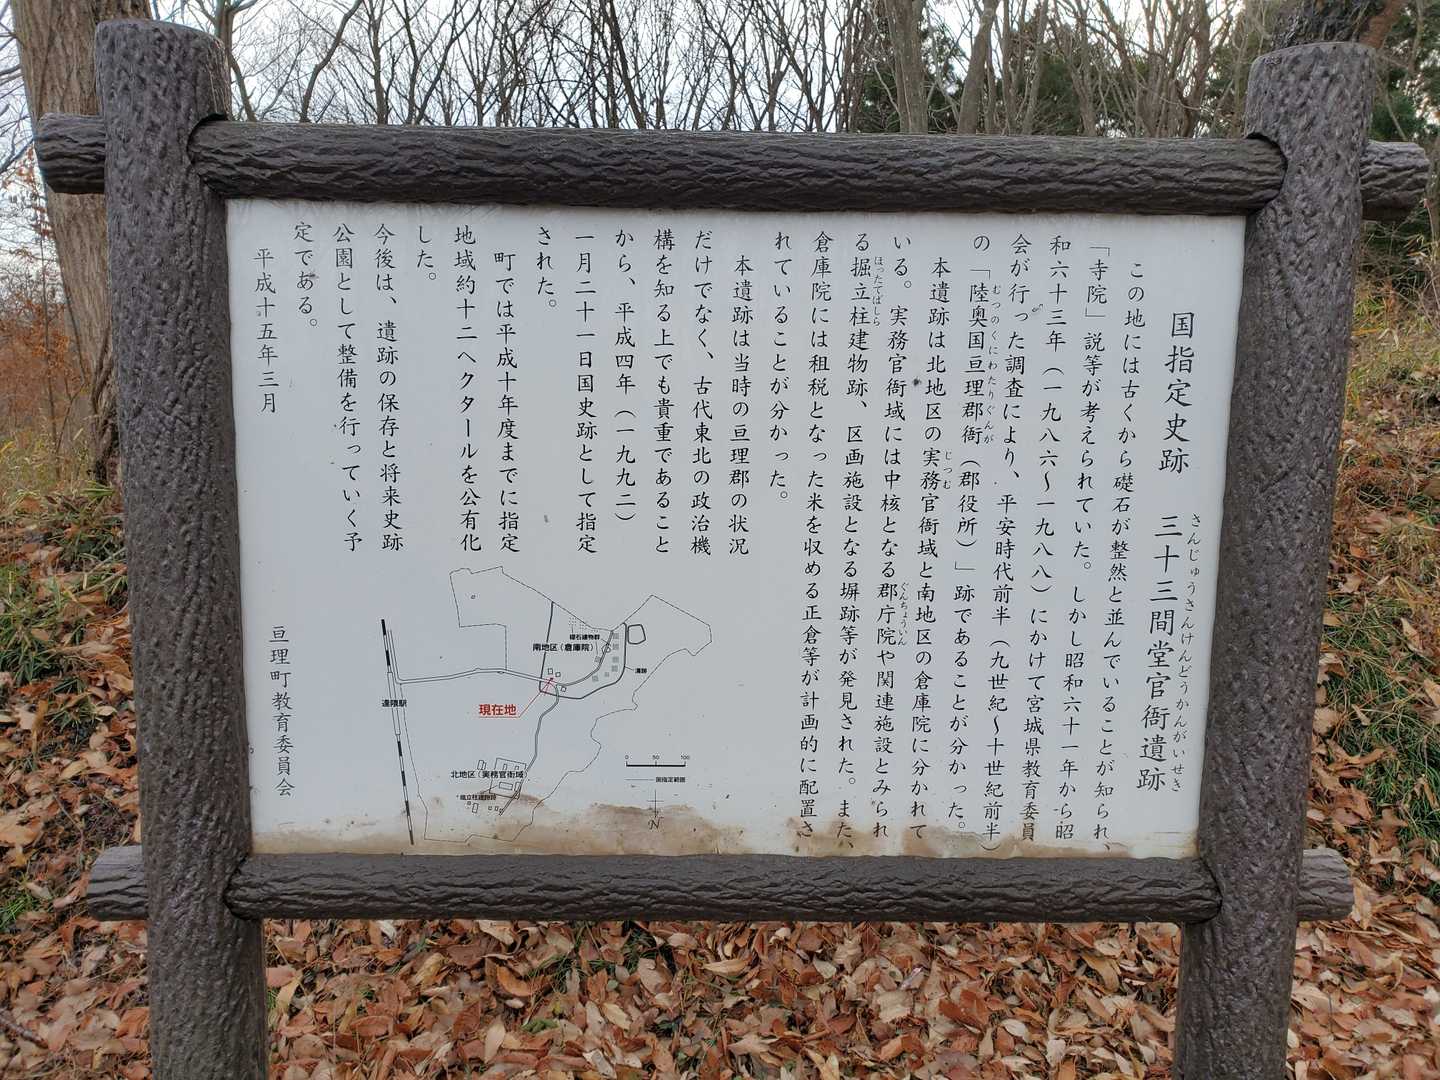 国指定史跡　三十三間堂官衙遺跡
さんじゅうさんけんどうかんがいせき
この地には古くから礎石が整然と並んでいることが知られ、
「寺院」説等が考えられていた。しかし昭和六十一年から昭
和六十三年（一九八六～一九八八）にかけて宮城県教育委員
会が行った調査により、平安時代前半（九世紀～十世紀前半）
の「陸奥国亘理郡衙（郡役所）」跡であることが分かった。
むつのくにわたりぐんが
本遺跡は北地区の実務官衙域と南地区の倉庫院に分かれて
じつむ
いる。実務官衙域には中核となる郡庁院や関連施設とみられ
ぐんちょういん
る掘立柱建物跡、区画施設となる塀跡等が発見された。また、
ほったてばしら
倉庫院には租税となった米を収める正倉等が計画的に配置さ
れていることが分かった。
本遺跡は当時の亘理郡の状況
だけでなく、古代東北の政治機
構を知る上でも貴重であること
から、平成四年（一九九二）
一月二十一日国史跡として指定
された。
町では平成十年度までに指定
地域約十二ヘクタールを公有化
した。
今後は、遺跡の保存と将来史跡
公園として整備を行っていく予
定である。
平成十五年三月
亘理町教育委員会
礎石建物群
南地区（倉庫院）
溝跡
逢隈駅
現在地
北地区（実務官衙域）
掘立柱建物跡
0 50 100
国指定範囲
N